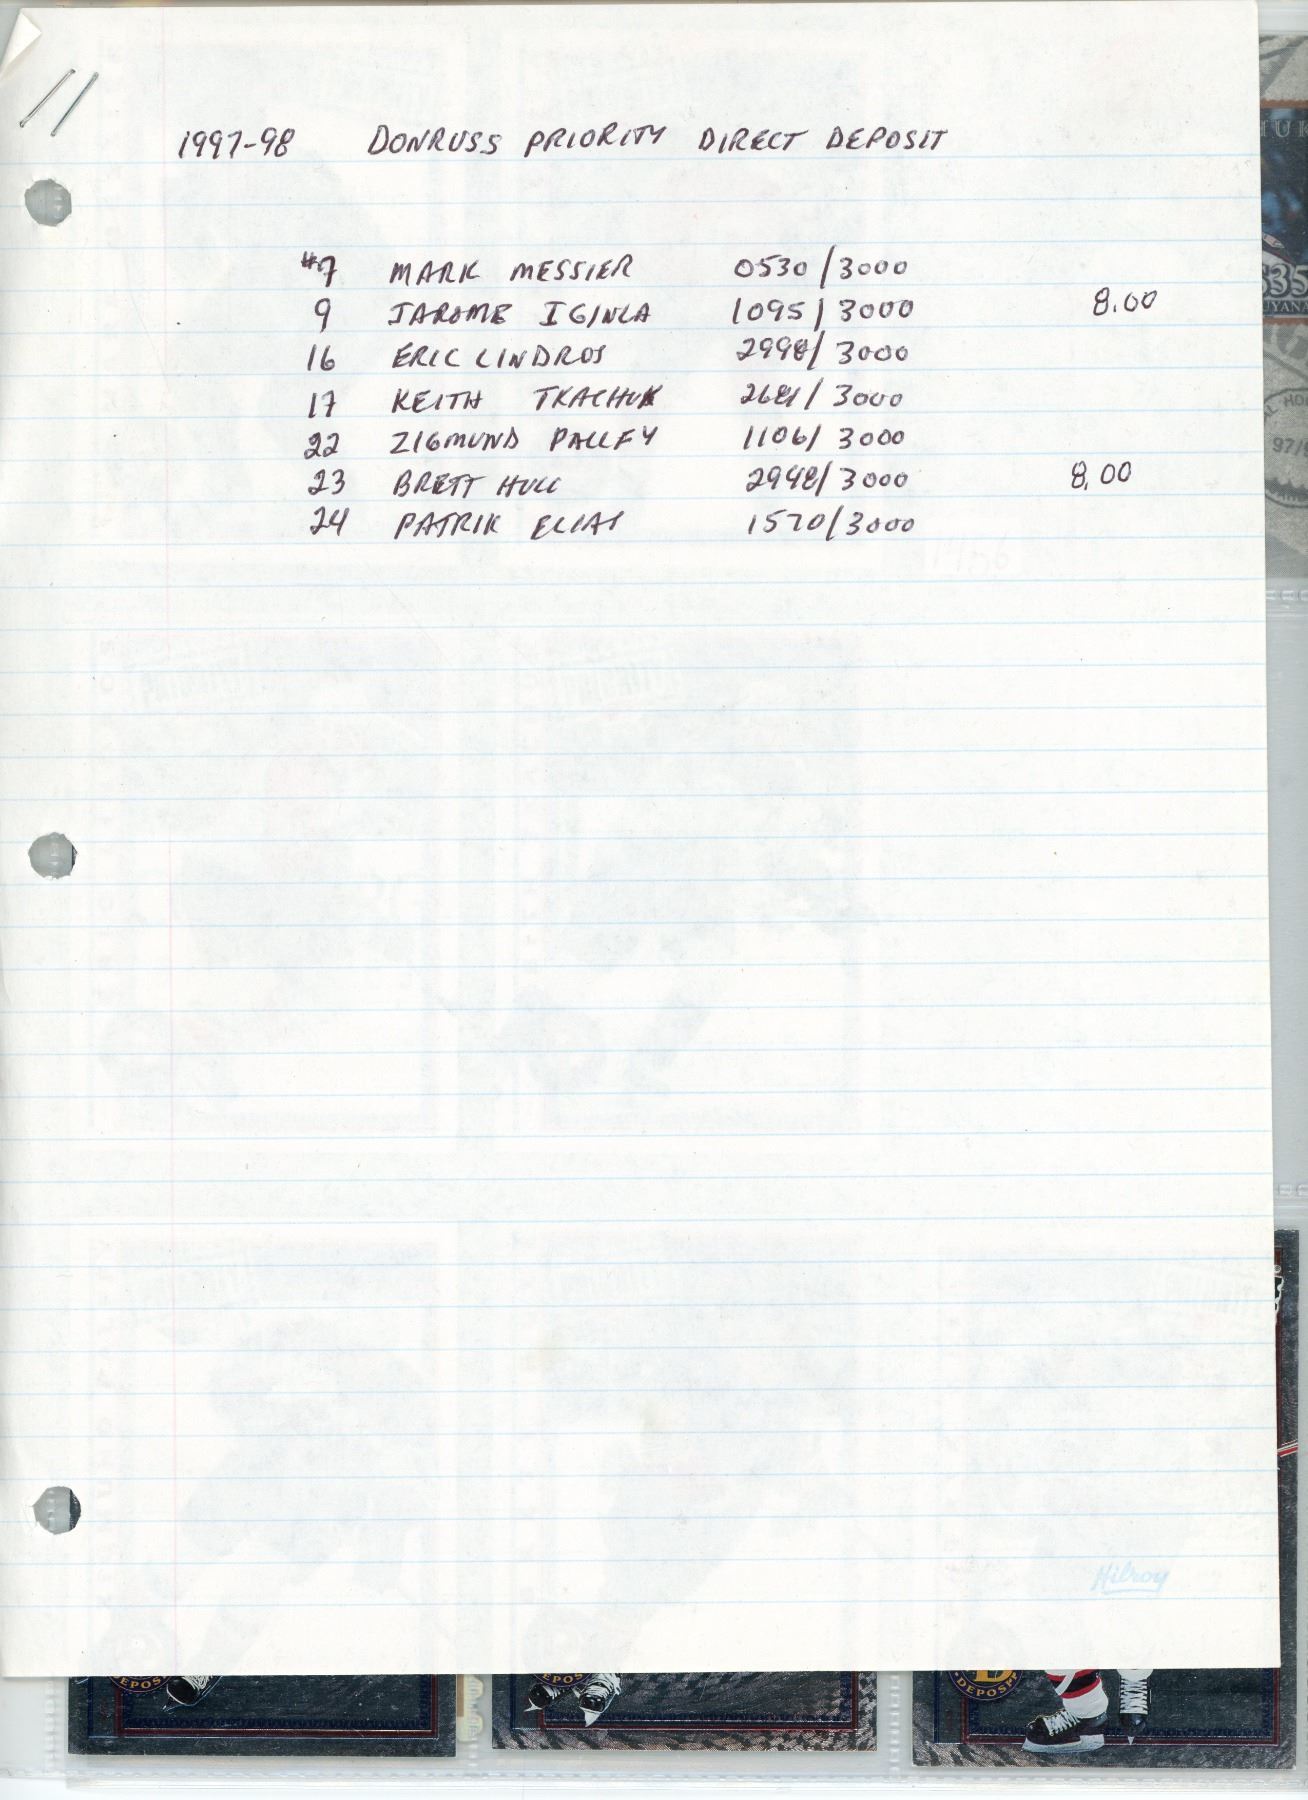 1997-98 DONRUSS PRIORITY DIRECT DEPOSIT
#7 MARK MESSIER 0530/3000
9 JAROME IGINLA 1095/3000 8.00
16 ERIC LINDROS 2998/3000
17 KEITH TKACHUK /3000
22 ZIGMUND PALLFY 1106/3000
23 BRETT HULL 2948/3000 8.00
24 PATRIK ELIAS 1570/3000
Hilroy